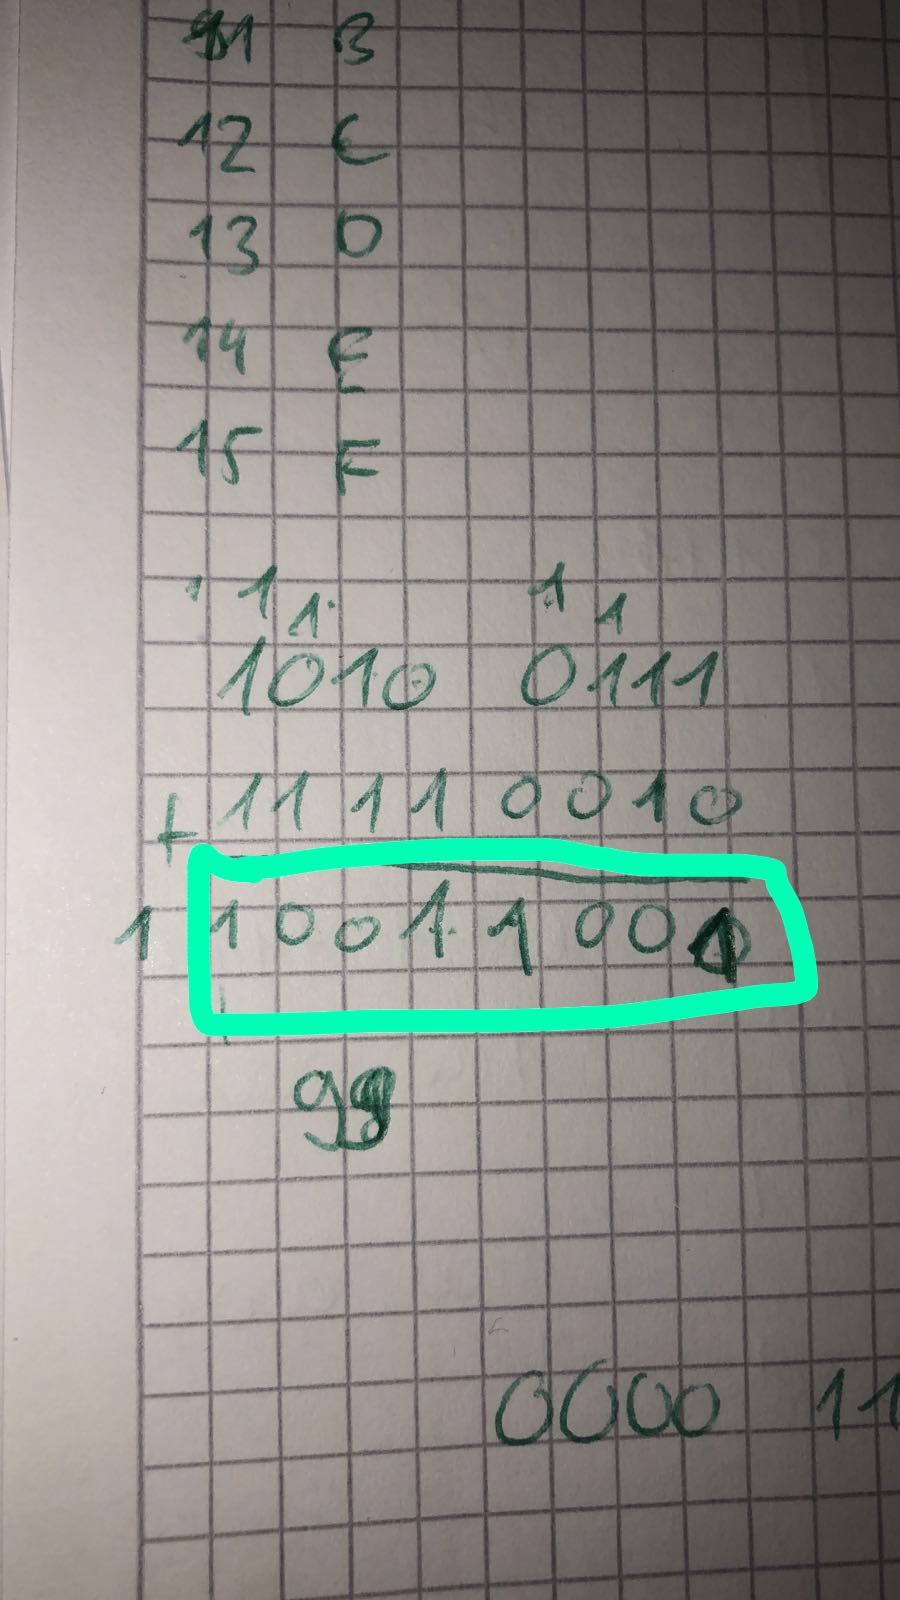 11 B
12 C
13 D
14 E
15 F
1 1 1 1
1010 0111
+ 1111 0010
1 1001 1001
99
0000 11